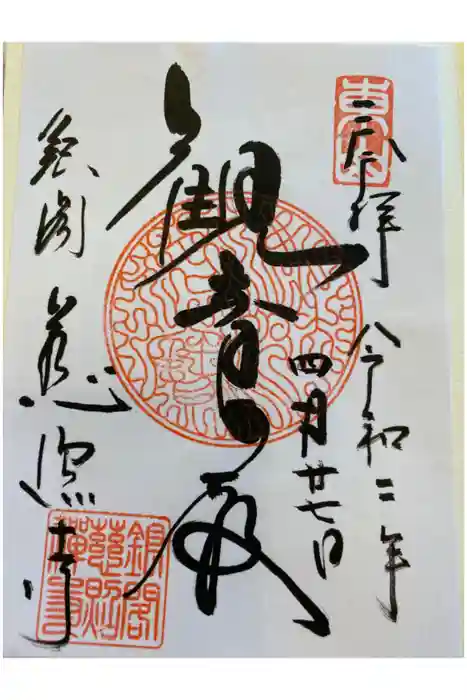 奉拝 令和二年
四月廿七日
観音殿
銀閣 慈照寺
銀閣
慈照
禪寺